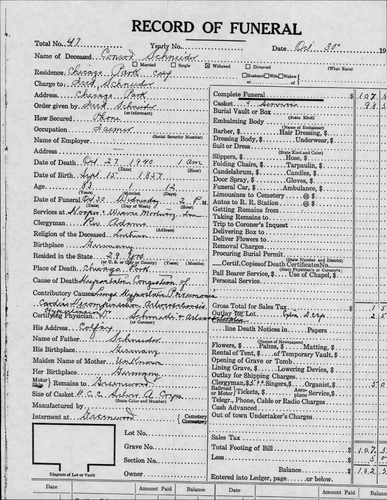 RECORD OF FUNERAL
Total No. 47 Yearly No. Date Oct 30 19
Name of Deceased Conrad Schneider
Married Single Widowed Divorced (What Race)
Residence Chicago Park Calif Husband Wife Widow of
Charge to Fred Schneider
Address Chicago Park
Order given by Fred Schneider
(or informant)
How Secured Phone
Occupation Farmer
(Social Security Number)
Name of Employer
Address
Date of Death Oct 27 1940 1 am
Date of Birth Sept 15 1857
Age 83 1 12
Date of Funeral Oct 30 Wednesday 2 P.M.
Services at Hooper Weaver Mortuary
Clergyman Rev Adams
Religion of the Deceased
Birthplace Germany
Resided in the State 29 yrs
Place of Death Chicago Park
Cause of Death Hypostatic Congestion of
Contributory Causes Lungs Hypostatic Pneumonia
Certifying Physician
(or Coroner)
His Address Colfax
Name of Father Schneider
His Birthplace Germany
Maiden Name of Mother unknown
Her Birthplace Germany
Motor Remains to Greenwood
Size of Casket
(State Color and Number)
Manufactured by
Interment at Greenwood Cemetery
Lot No.
Grave No.
Section No.
Diagram of Lot or Vault Owner
Complete Funeral $ 107.5
Casket $ 98
Burial Vault or Box
(State Kind)
Embalming Body
(Name of Embalmer)
Barber, $ Hair Dressing, $
Dressing Body, $ Underwear, $
Suit or Dress
(State Kind and Color)
Slippers, $ Hose, $
Folding Chairs, $ Tarpaulin, $
Candelabrum, $ Candles, $
Door Spray, $ Gloves, $
Funeral Car, $ Ambulance, $
Limousines to Cemetery @ $
Autos to R. R. Station @ $
Getting Remains from
Taking Remains to
Trip to Coroner's Inquest
Delivering Box to
Deliver Flowers to
Removal Charges
Procuring Burial Permit
(State Number and District)
Certif. Copies of Death Certificate No.
Pall Bearer Service, $ Use of Chapel, $
Personal Service
Gross Total for Sales Tax
Outlay for Lot
(State to Whom Paid)
line Death Notices in Papers
(Names of Newspapers)
Flowers, $ Palms, $ Matting, $
Rental of Tent, $ of Temporary Vault, $
Opening of Grave or Tomb
Lining Grave, $ Lowering Device, $
Outlay for Shipping Charges
Clergyman, $ 5.00 Singers, $ Organist, $ 5.0
Railroad or Motor Tickets, $ plane Service, $
Telegr., Phone, Cable or Radio Charges
Cash Advanced
Out of town Undertaker's Charges
Sales Tax
Total Footing of Bill $ 107.5
Less $ 5.0
Balance $ 102.5
Entered into Ledger, page or below.
Date Amount Paid Balance Date Amount Paid Balance